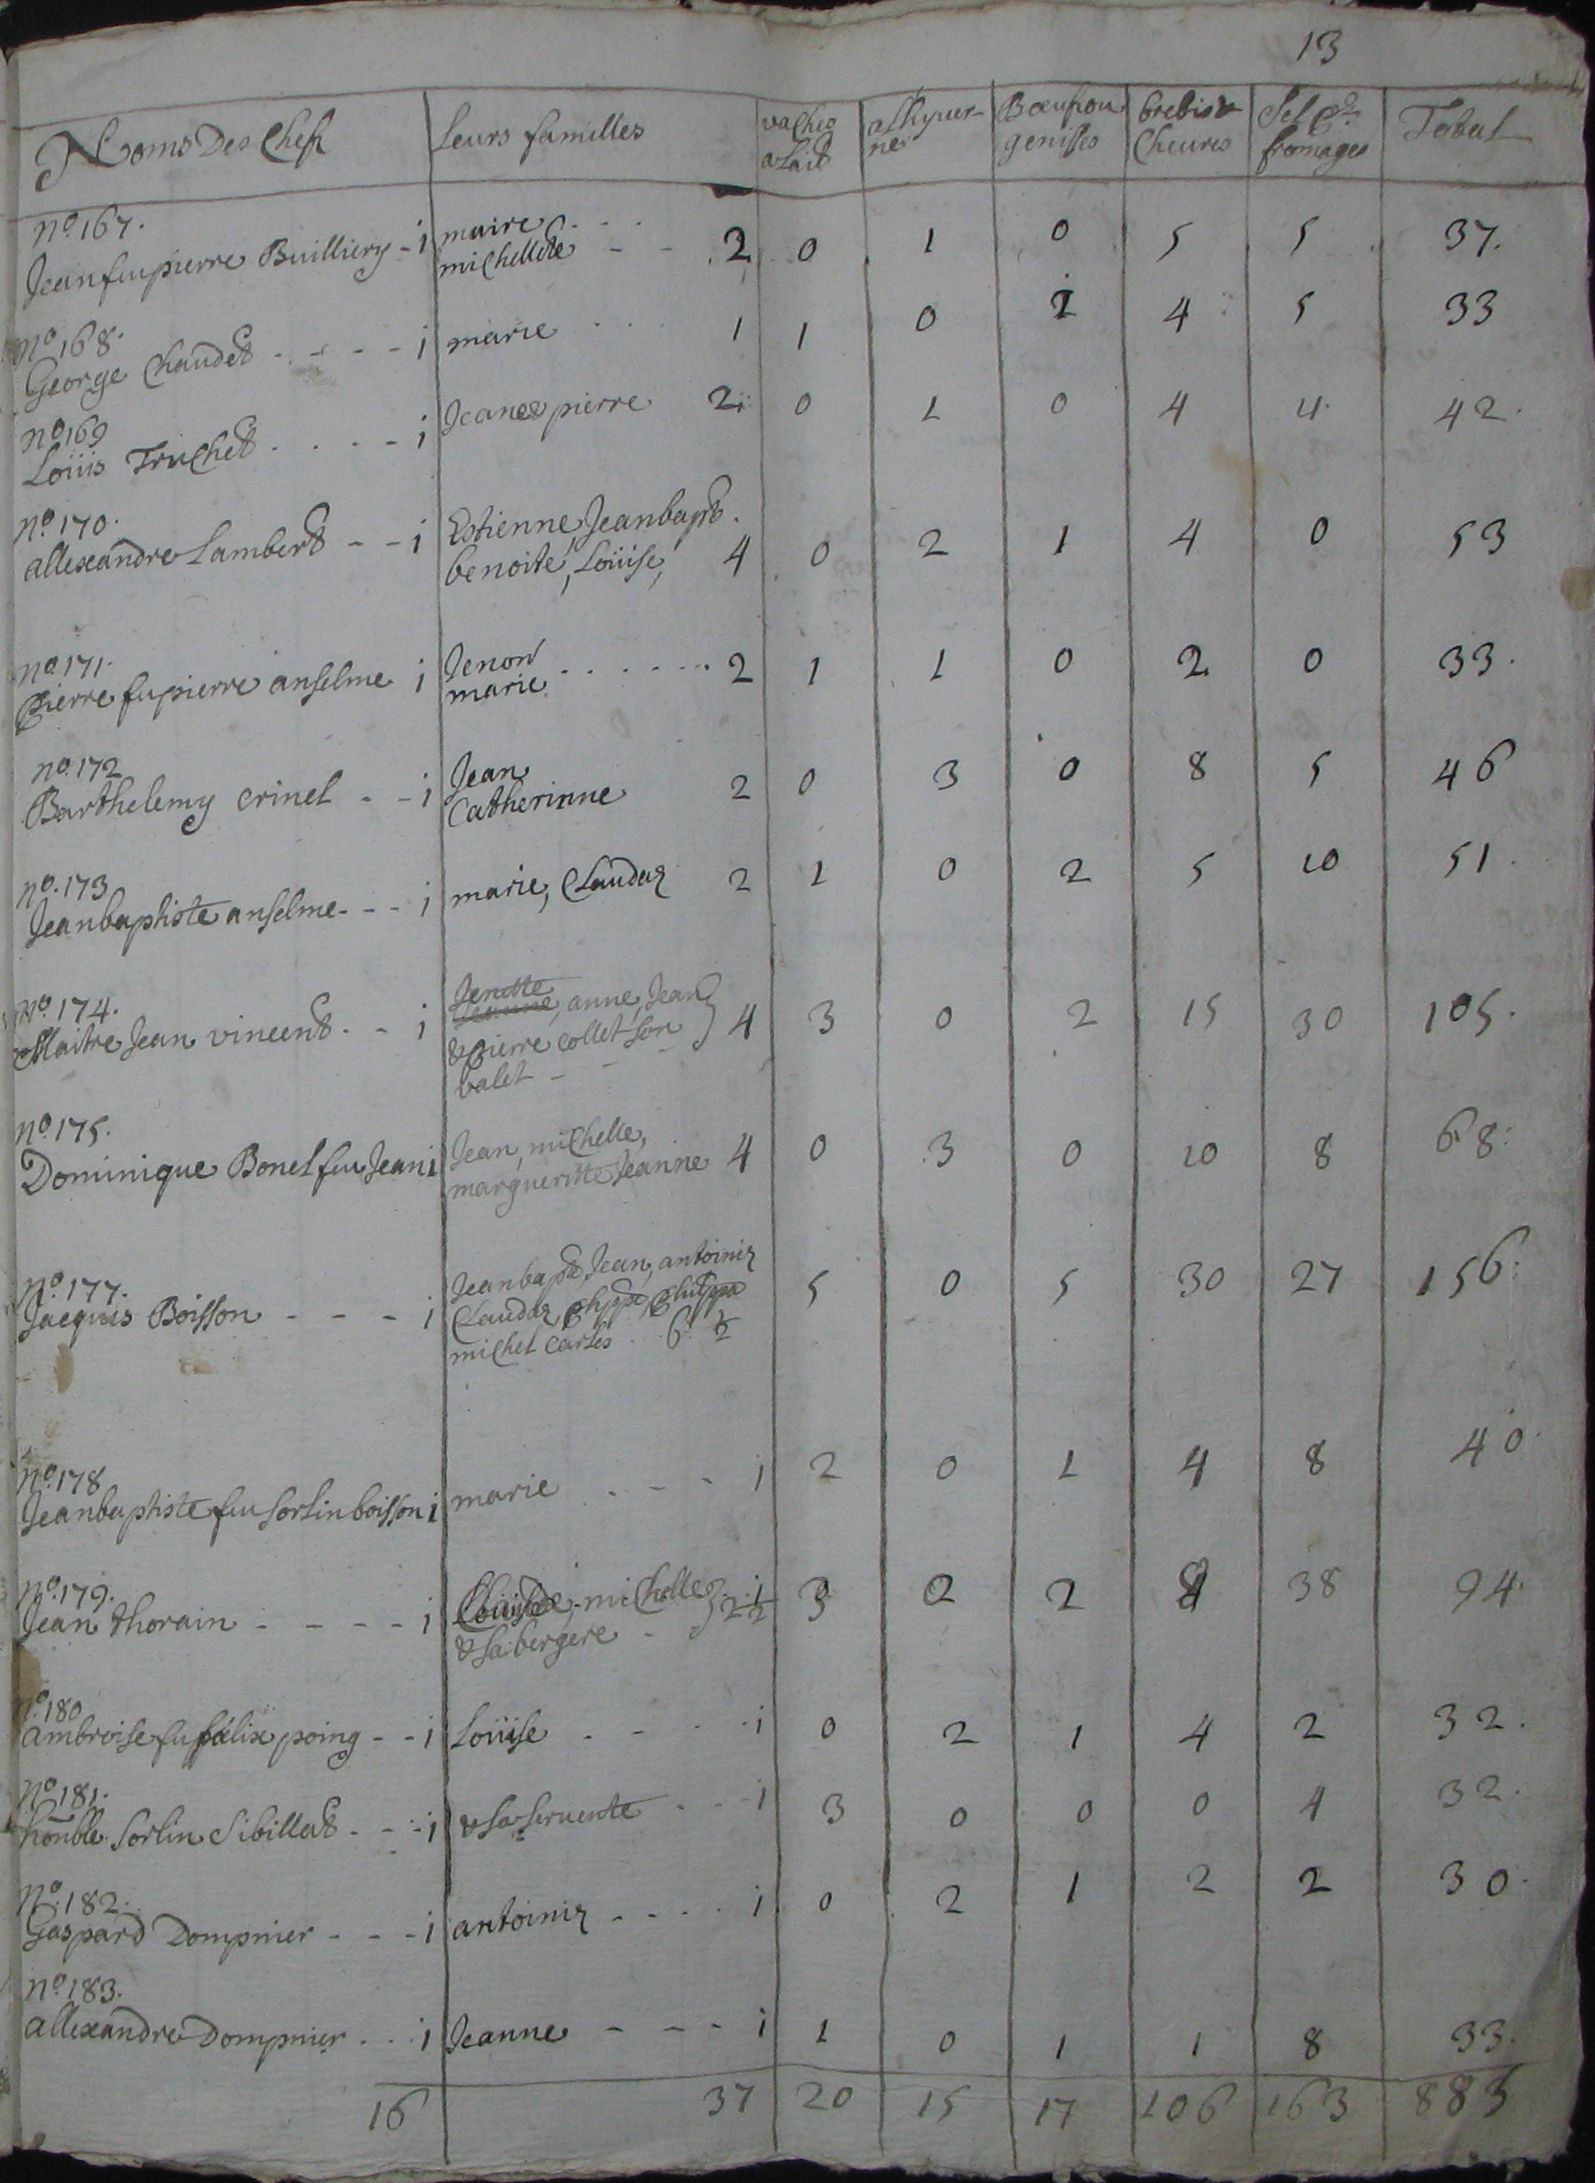 13
Noms Des Chefs | Leurs familles | vaches a Lait | a L'hyuerner | Bœufs ou genisses | brebis & Cheures | Sel pr. fromages | Total
no. 167.
Jean feu pierre Buillierg - 1 | maire - - - michellete - - 2 | 0 | 1 | 0 | 5 | 5 | 37.
no. 168.
George Chaudet - - - - 1 | marie . . . . 1 | 1 | 0 | 1 | 4 | 5 | 33
no 169
Loüis Truchet . . . - 1 | Jean & pierre 2 | 0 | 1 | 0 | 4 | 4 | 42.
no. 170.
allexandre Lambert - - 1 | Estienne, Jeanbapt.
benoite, Loüise, 4 | 0 | 2 | 1 | 4 | 0 | 53
no. 171.
Pierre fu pierre anselme 1 | Jenon
marie . . . . . . 2 | 1 | 1 | 0 | 2 | 0 | 33.
no. 172
Barthelemy crinel - - 1 | Jean
Catherinne 2 | 0 | 3 | 0 | 8 | 5 | 46
no. 173
Jeanbaptiste anselme - - - 1 | marie, Claudaz 2 | 1 | 0 | 2 | 5 | 10 | 51.
no. 174.
Maitre Jean vincent - - 1 | Jenotte
Jeanne, anne, Jean
& pierre collet son
valet - - - } 4 | 3 | 0 | 2 | 15 | 30 | 105.
no. 175.
Dominique Bonel feu Jean 1 | Jean, michelle,
margueritte Jeanne 4 | 0 | 3 | 0 | 10 | 8 | 68.
no. 177.
Jacques Boisson - - - 1 | Jeanbapt Jean, antoiniz
Claudaz, phppe, philippa
michel carles 6 1/2 | 5 | 0 | 5 | 30 | 27 | 156.
no. 178
Jeanbaptiste feu sorlin boisson 1 | marie . - - 1 | 2 | 0 | 1 | 4 | 8 | 40
no. 179.
Jean thorain - - - - 1 | michelle
& sa bergere - } 2 1/2 | 3 | 2 | 2 | 8 | 38 | 94.
no. 180
ambroise fu félix poing - - 1 | Loüise - - - 1 | 0 | 2 | 1 | 4 | 2 | 32.
no. 181.
honnble. sorlin Sibillat - - 1 | & sa seruente - - - 1 | 3 | 0 | 0 | 0 | 4 | 32.
no. 182.
Gaspard Dompnier - - - 1 | antoiniz - - . . 1 | 0 | 2 | 1 | 2 | 2 | 30.
no. 183.
allexandre Dompnier . . 1 | Jeanne - - - 1 | 1 | 0 | 1 | 1 | 8 | 33.
16 | 37 | 20 | 15 | 17 | 106 | 163 | 885